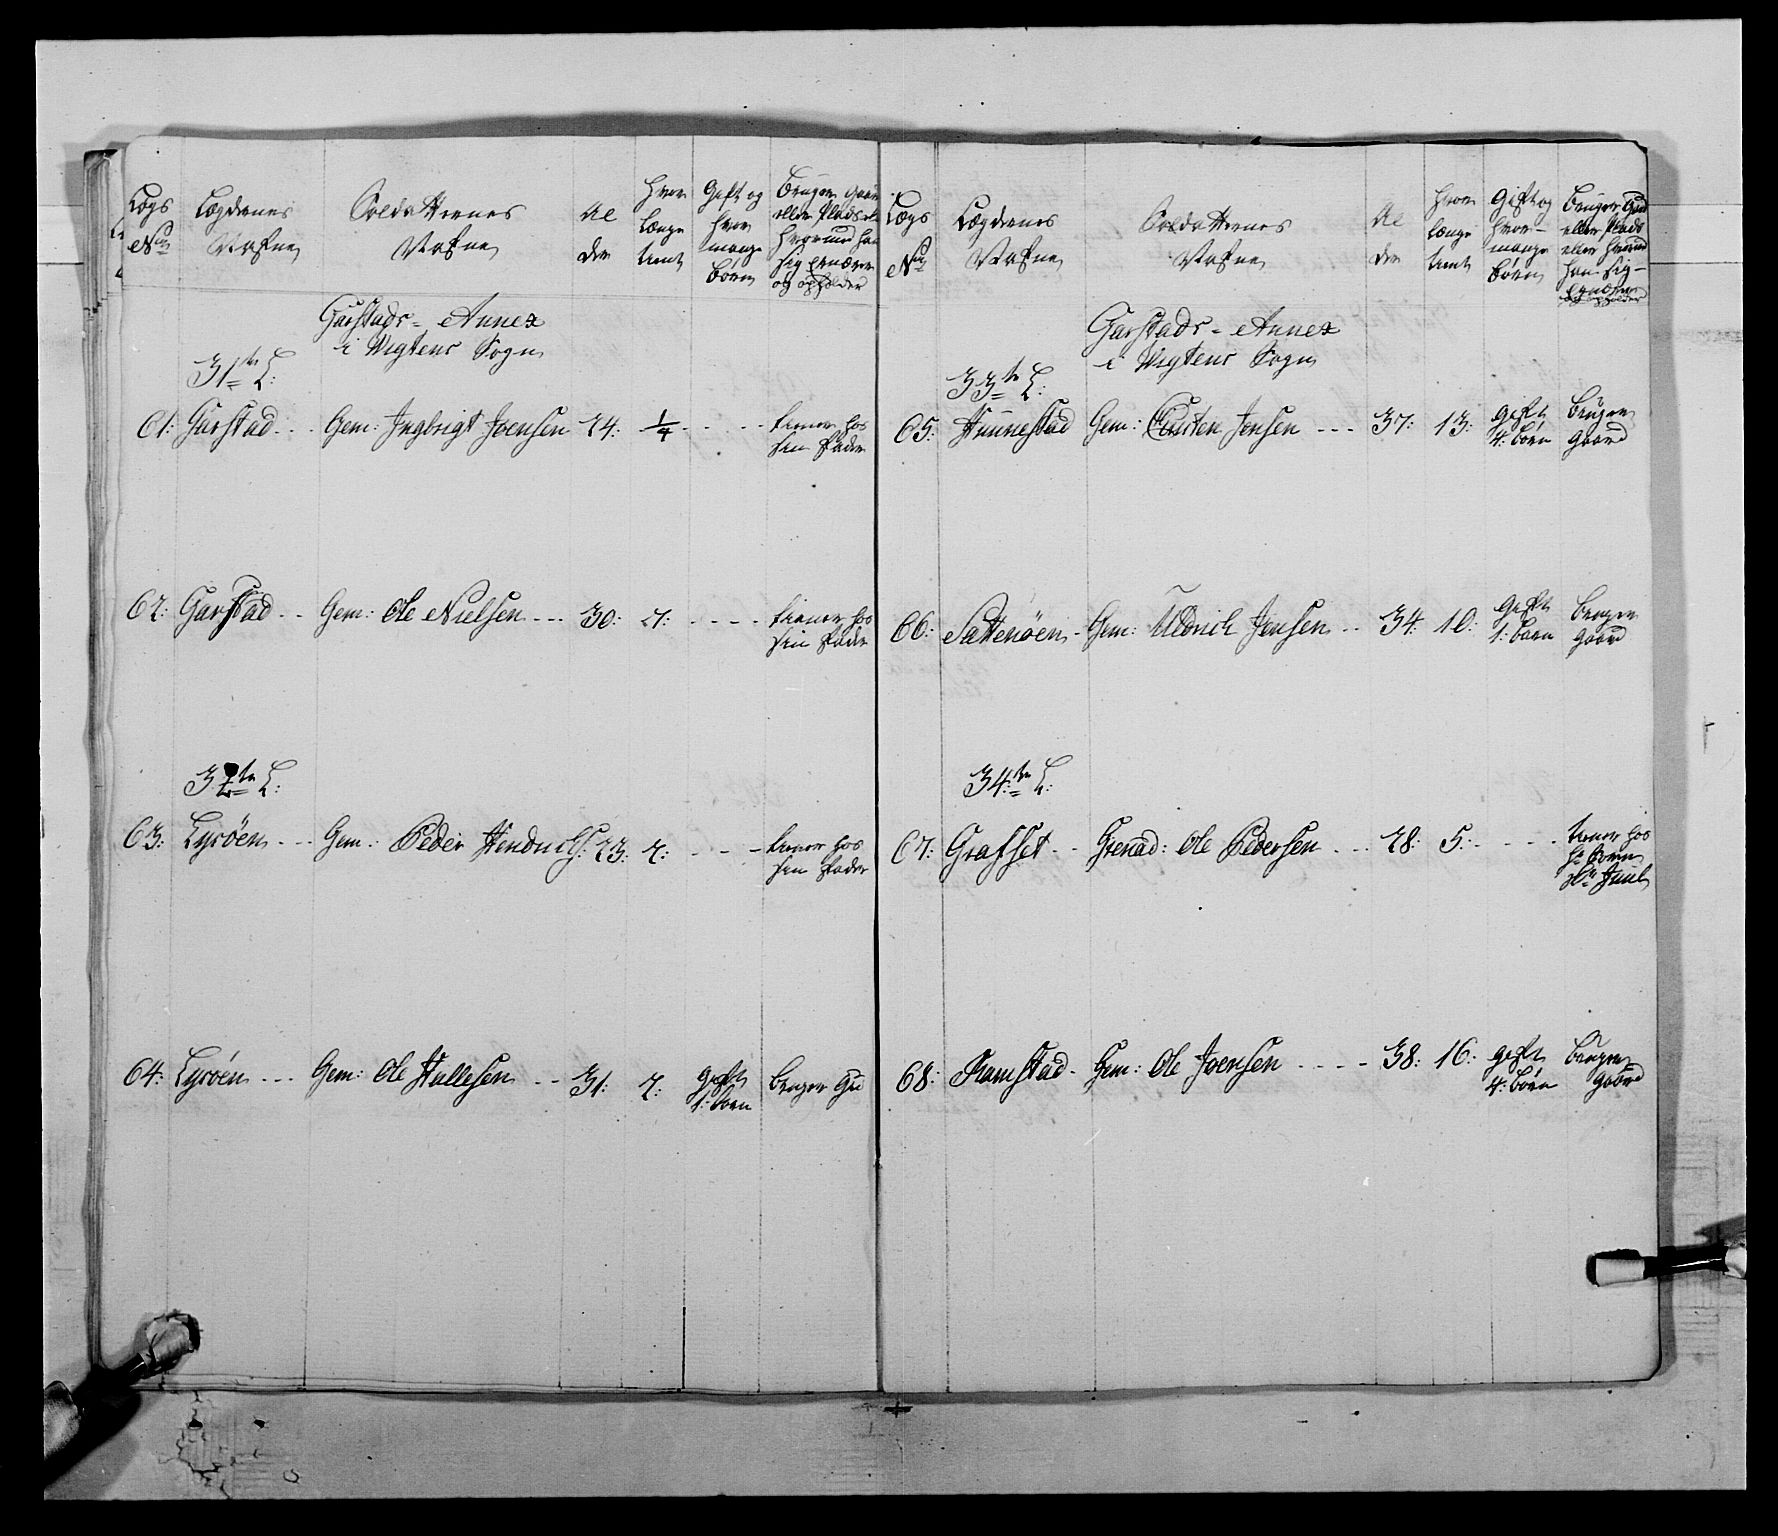 Lægs Nr. Lægdernes Nafne Soldatternes Nafne Alder Hvor længe tient Gift og hvor mange børn Bruger gaard eller Plads eller hvormed han sig ernærer og opholder
Garstads- Annex
i Wigtens Sogn
31te L:
61: Garstad Gem: Ingbrigt Joensen 24: 1/4 tiener hos
sin Fader
62: Garstad Gem: Ole Nielsen 30: 7: tiener hos
sin Fader
32te L:
63: Lyrøen Gem: Peder Hendrichs: 23: 2: tiener hos
sin Fader
64: Lyrøen Gem: Ole Hallesen 31: 2: gift
1: børn bruger Gd
Lægs Nr. Lægdernes Nafne Soldatternes Nafne Alder Hvor længe tient Gift og hvor- mange børn Bruger Gaard eller Plads eller hvormed han sig- ernærer og opholder
Garstads- Annex
i Wigtens Sogn
33te L:
65: Hunnestad Gem: Carsten Jensen 37: 13: gift
4: børn Bruger
gaard
66: Sattenøen Gem: Uldrich Jensen 34: 10: Gift
1: børn bruger
gaard
34te L:
67: Grafset Grenad: Ole Pedersen 28: 5: tiener hos
Juul
68: Ramstad Gem: Ole Joensen 38: 16: gift
4: børn bruger
gaard